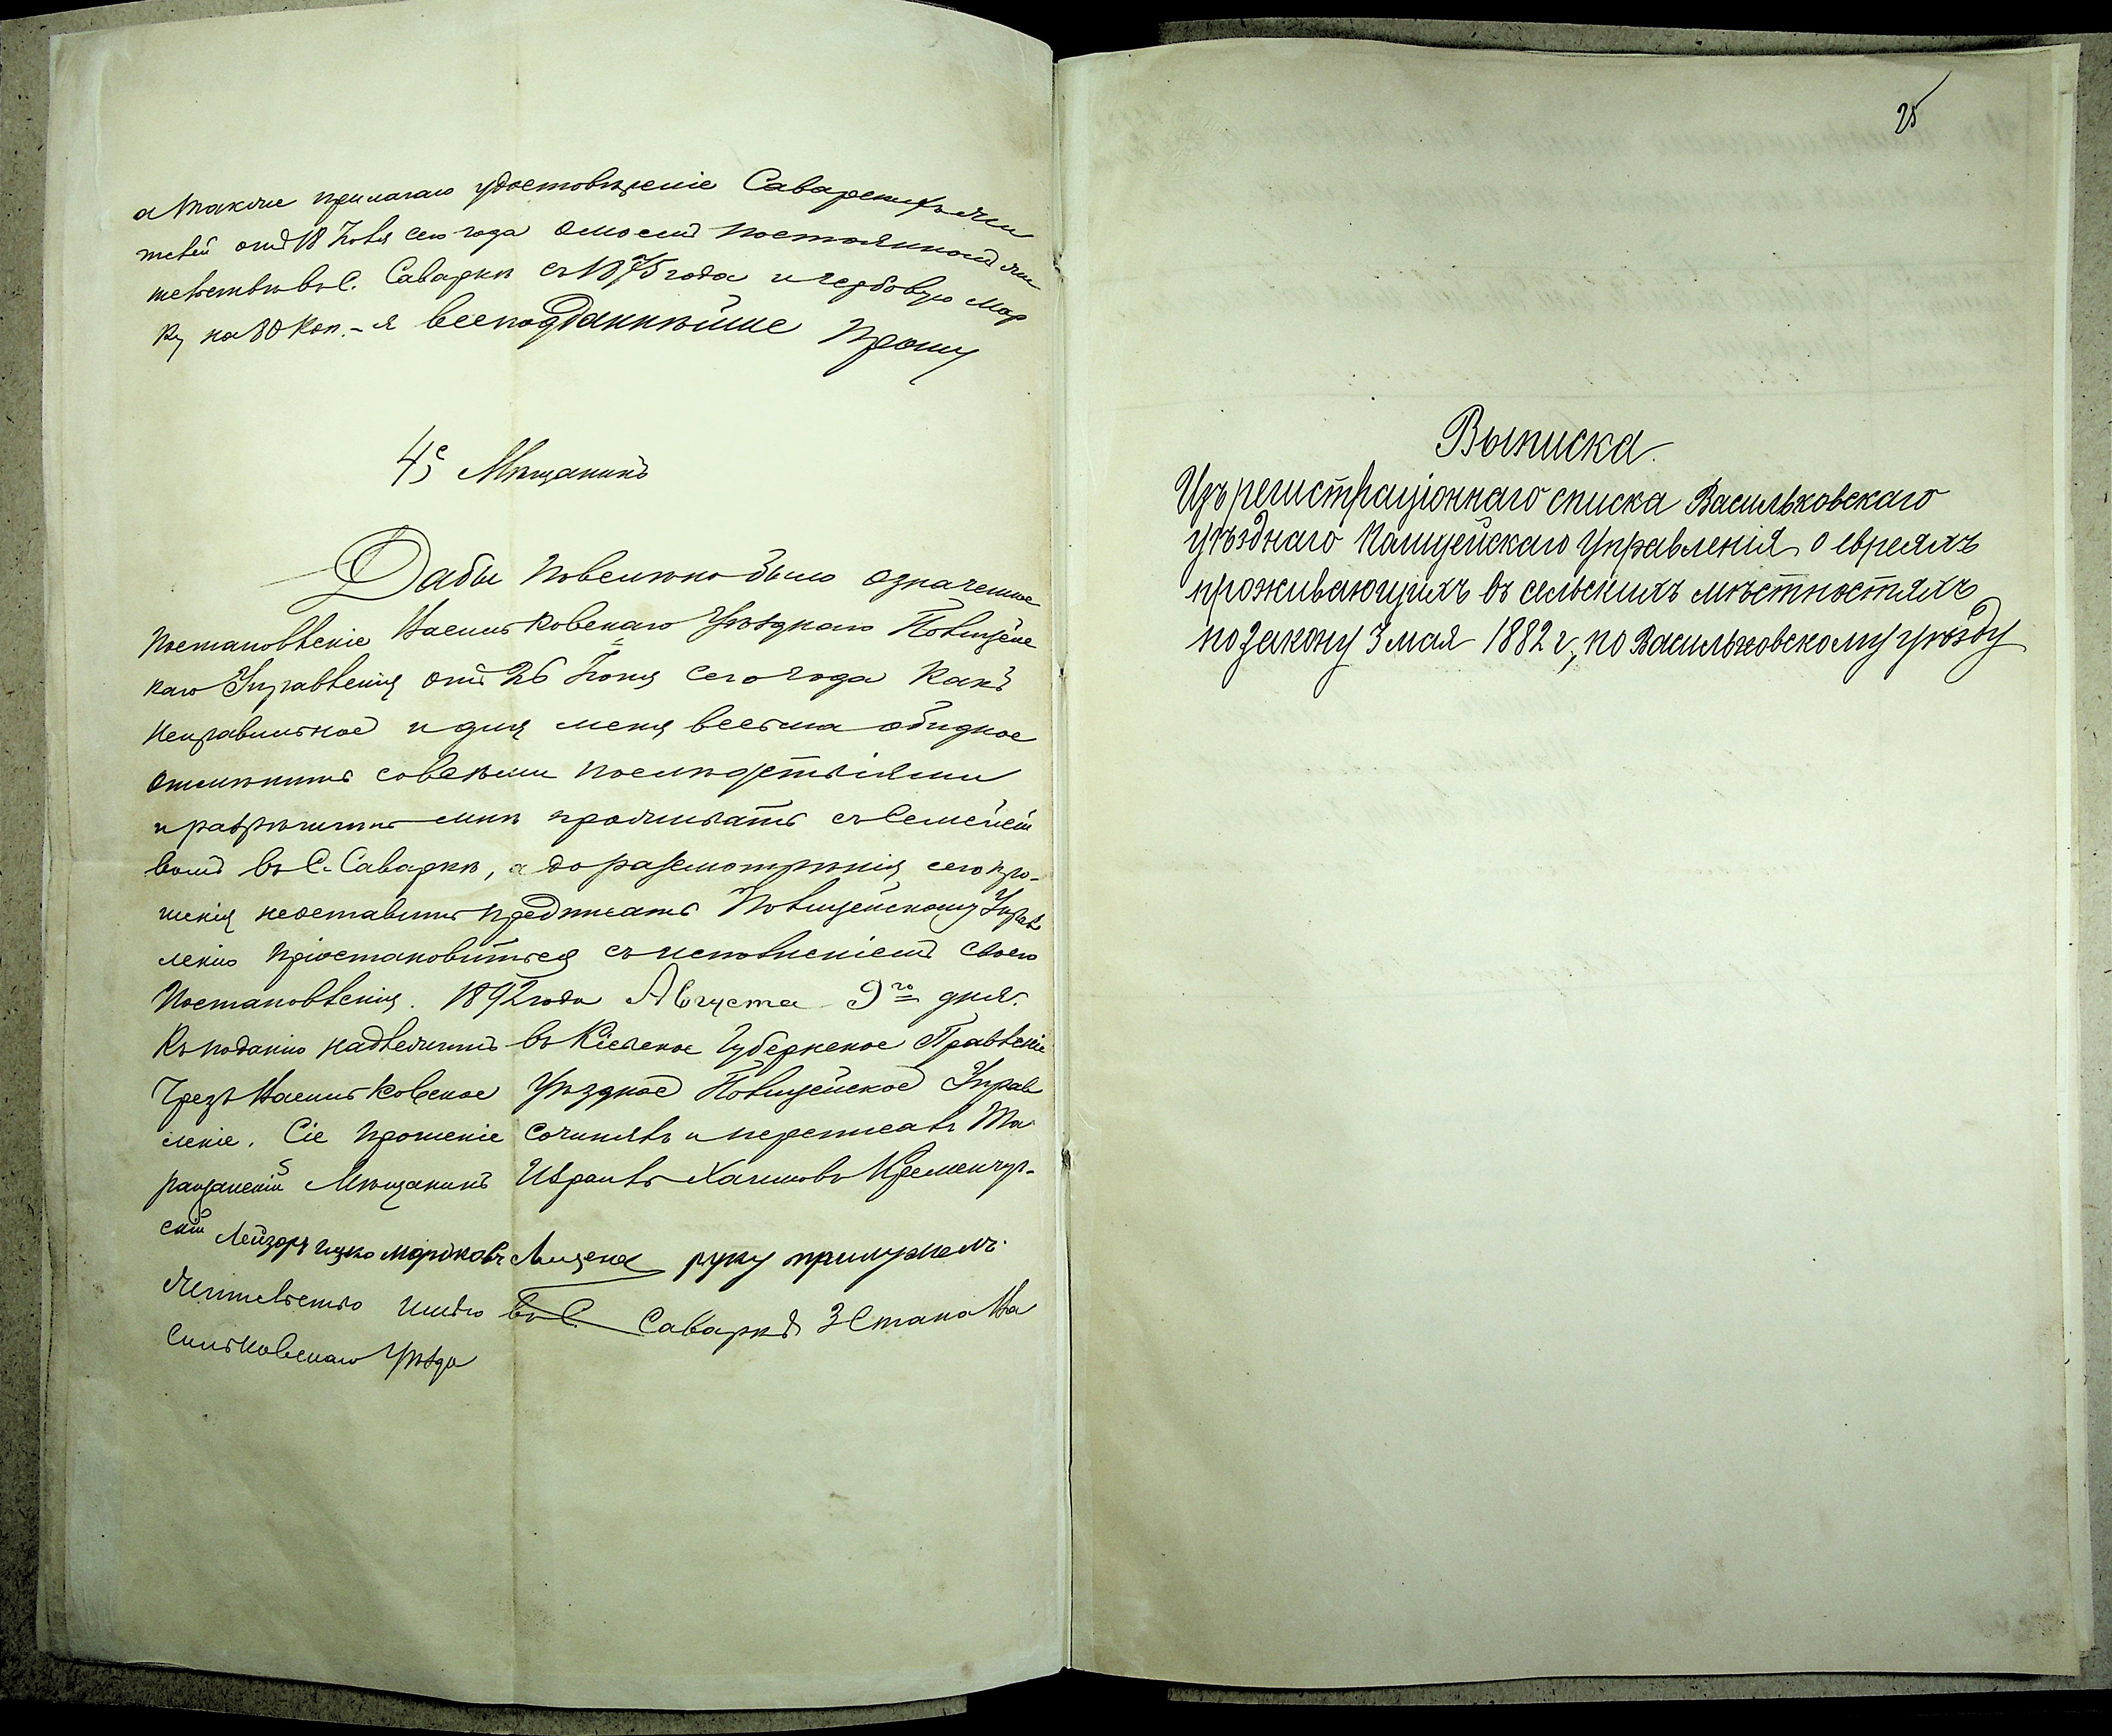 а также прилагаю удостовѣреніе Саварскихъ жи
телей отъ 18 Іюля сего года о моемъ постоянномъ жи
тельствѣ въ С. Саварки съ 1875 года и гербовую мар
ку на 80 коп. - я всеподданнѣйше прошу
Мѣщанинъ
Дабы повелѣно было означенное
постановленіе Васильковскаго Уѣзднаго Полицейс
каго Управленія отъ 26 Іюня сего года какъ
неправильное и для меня весьма обидное
отмѣнить со всѣми послѣдствіями
и разрѣшить мнѣ проживать съ семейст
вомъ въ С. Саварки, а до разсмотрѣнія сего про-
шенія не оставить предписать Полицейскому Управ
ленію пріостановиться съ исполненіемъ своего
Постановленія. 1892 года Августа 9го дня.
Къ поданію надлежитъ въ Кіевское Губернское Правленіе
Чрезъ Васильковское Уѣздное Полицейское Управ
леніе. Сіе прошеніе сочинялъ и переписалъ Та
ращанскій Мѣщанинъ Израиль Хаимовъ Кременчуг-
скій Лейзоръ Ицко Мордковъ руку приложилъ.
Жительство имѣю въ С. Саваркѣ 3 Стана Ва
сильковскаго Уѣзда
25
Выписка
Изъ регистраціоннаго списка Васильковскаго
уѣзднаго Полицейскаго Управленія о евреяхъ
проживающихъ въ сельскихъ мѣстностяхъ
по закону 3 мая 1882 г., по Васильковскому уѣзду